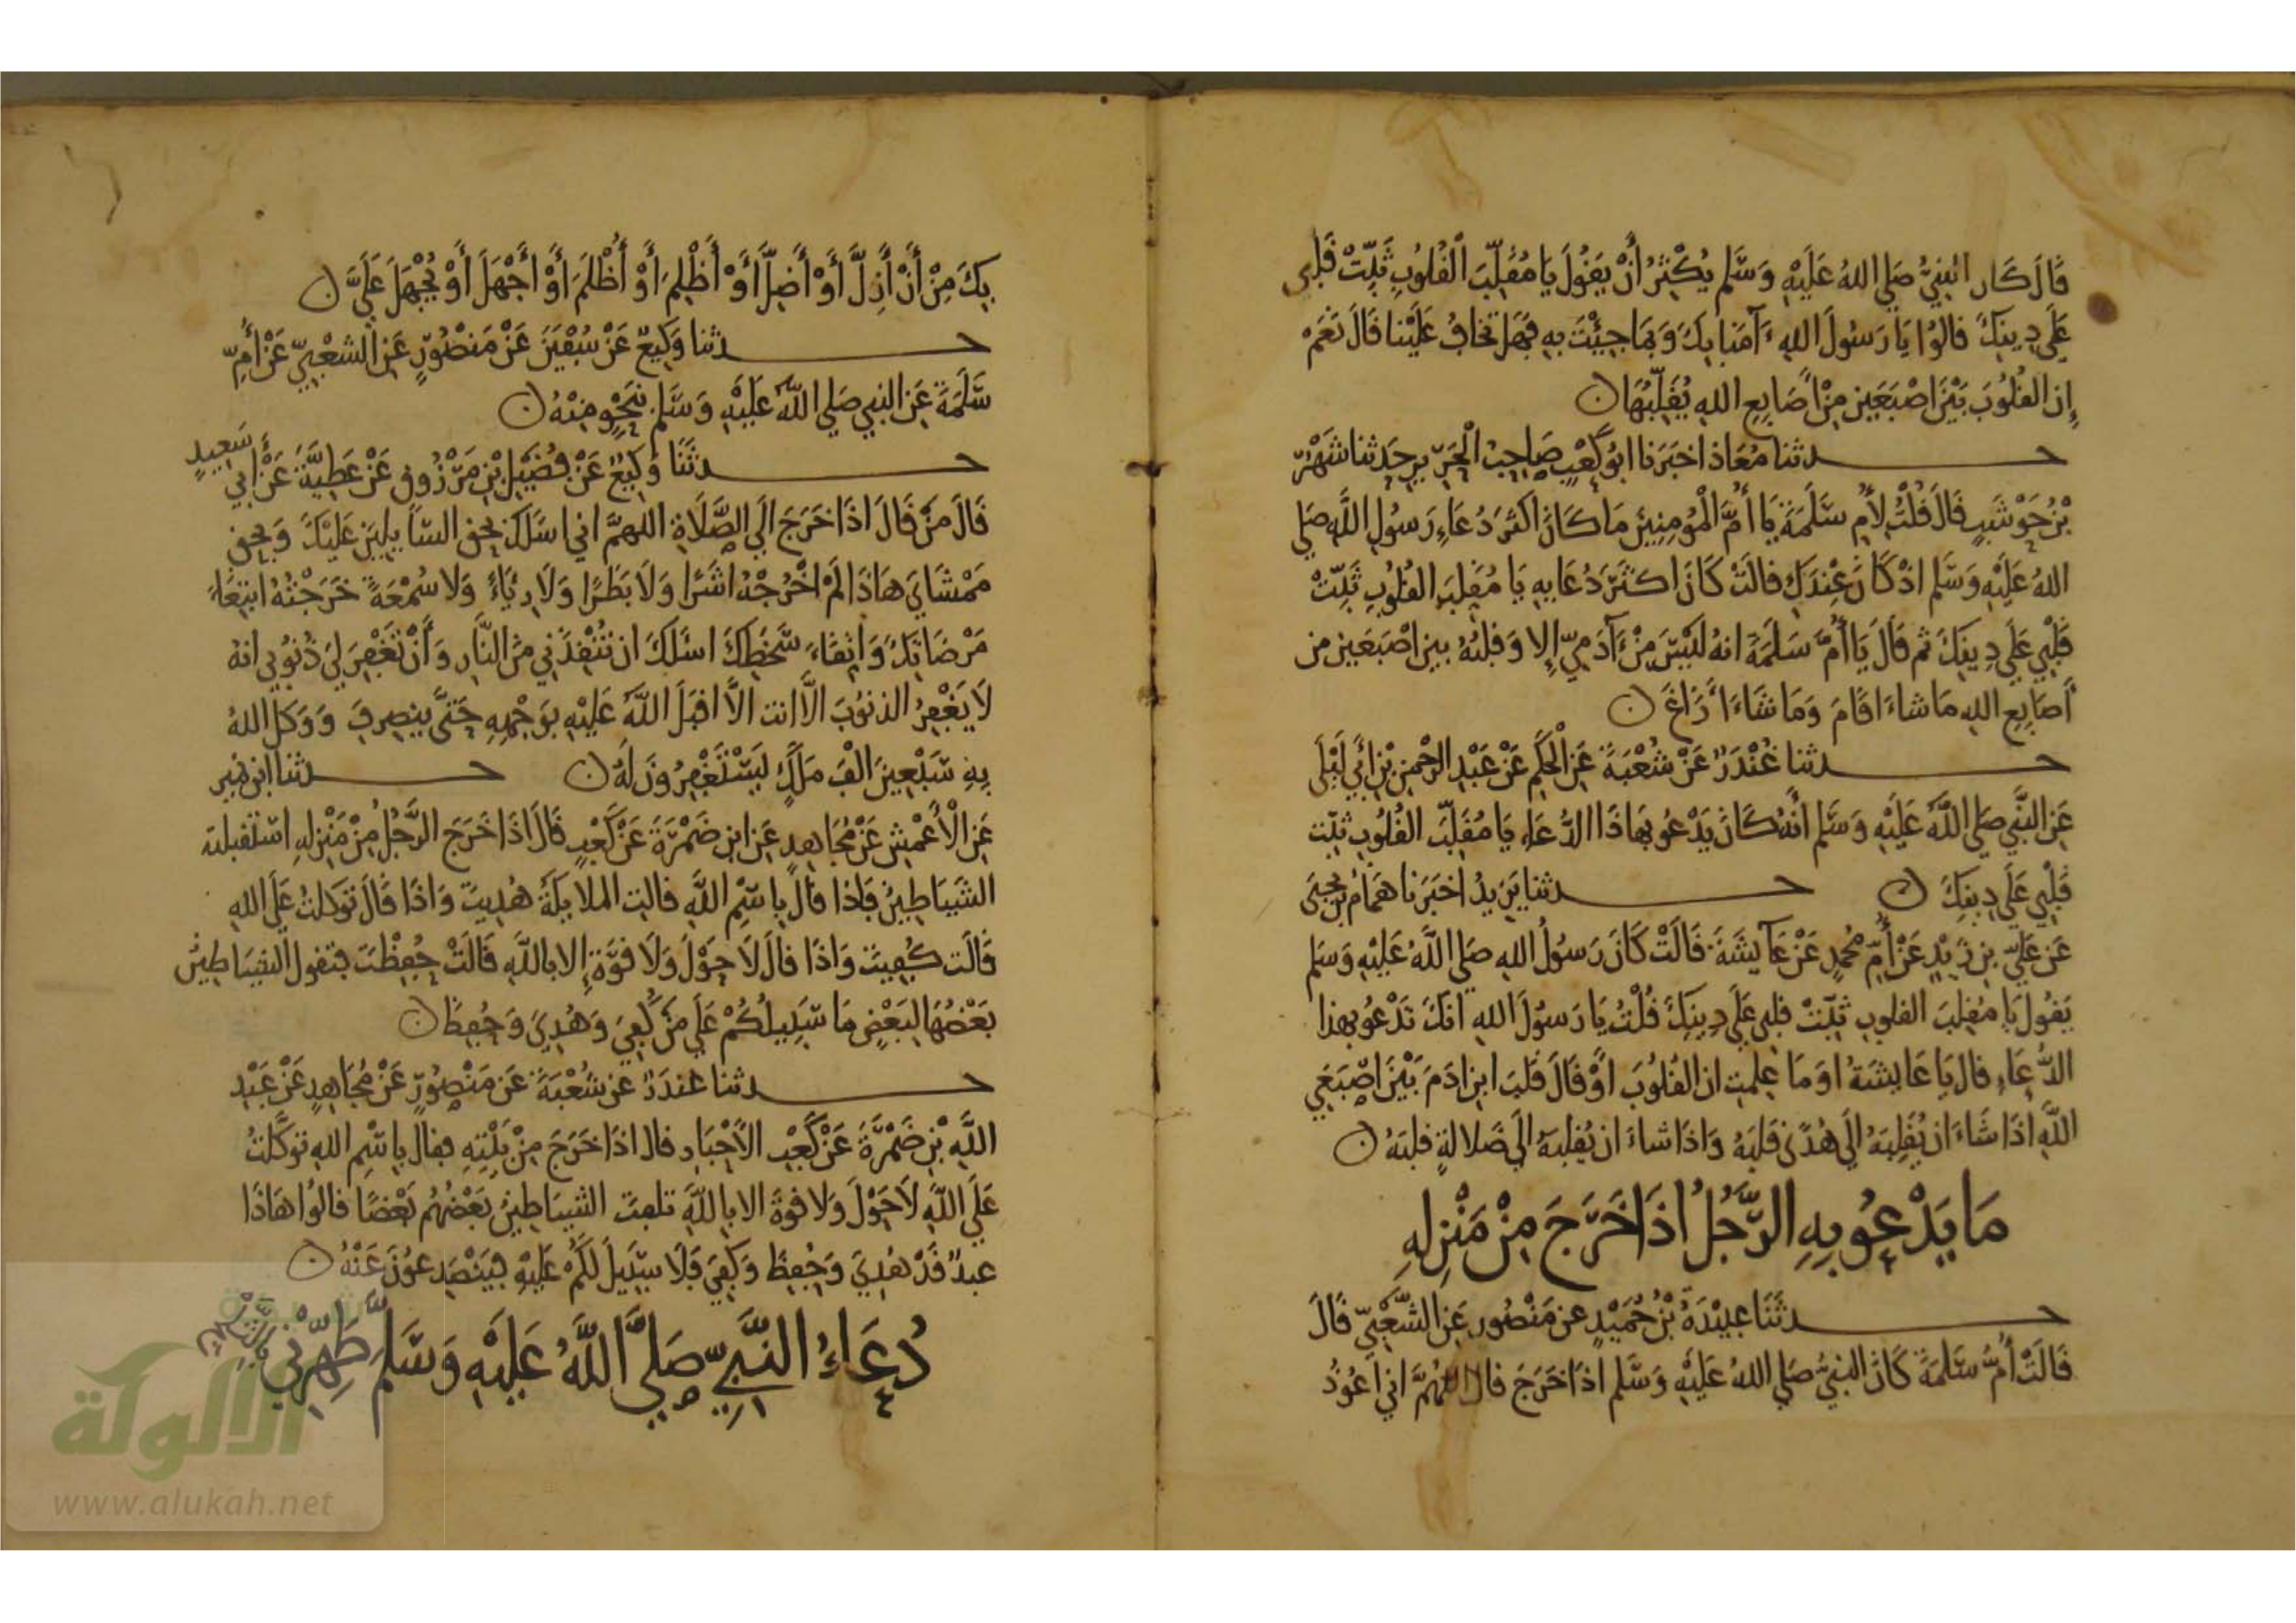 قَالَ كَانَ النبيُّ صَلي اللهُ عَلَيْهِ وَسَّلم يُكْثِرُ أنْ يَقُولَ يَا مُقَلِّبَ الْقُلُوبِ ثَبِّتْ قَلبي
عَلَي دِينِكَ قالوُا يَا رَسوُلَ اللهِ ءَآمَنا بِكَ وَبَمَا جِئْتَ بِهِ فهَل تخافُ عَلَيْنا قَالَ نَعَمْ
إن القُلُوُبَ بَيْنَ اصْبَعَين مِنْ أصَابِعِ اللهِ يُقَلِّبُهَا ن
حدثنا مُعَاذ اخبَرَنا ابوُ كَعْبٍ صَاحِبُ الْحَرِّيرِ حَدثنا شَهْرُ
بْنُ حَوْشَبٍ قَالَ قُلْتُ لأمِ سَّلَمَةَ يَا أمَّ الْمُومِنِينَ مَا كَانَ اكثَر دُعَاءِ رَسوُلِ اللَّه صَلي
اللهُ عَلَيْهِ وَسَّلم اذْ كَانَ عِنْدَكِ قالَتْ كَانَ اكثَر دُعَايِهِ يَا مُقَلبَ القُلُوبِ ثَبِّتْ
قَلْبِي عَلَي دِينِكَ ثم قَالَ يَا أمَّ سَلَمَةَ انهُ لَيْسَ مِنْ ءَآدَمِيّ إلا وَقلبُهُ بين اصْبَعَين من
أصَابِعِ اللهِ مَا شاءَ اقَامَ وَمَا شَاءَ أزَاغَ ن
حدثنا غُنْدَرٌ عَنْ شُعْبَةَ عَنِ الْحَكَمِ عَنْ عَبْدِ الرَّحْمنِ بْنِ أبي لَيْلَى
عَن النَّبي صَلي اللَّهُ عَلَيْهِ وَسَّلم أنَّهُ كَانَ يَدْعُو بهَاذَا الدُّعَاءِ يَا مُقَلِّبَ القُلُوبِ ثبِّت
قَلْبِي عَلَي دِينِكَ ن حدثنا يَزيدُ اخبَرَنا هَمَّامُ بن يحْيَى
عَن عَلِيّ بنِ زَيْدٍ عَنْ أُمِّ مُحمدٍ عَنْ عَآيشَةَ قالَتْ كَانَ رَسوُلُ اللهِ صَلي اللَّهُ عَلَيْهِ وَسَلم
يَقُولَ يَا مُقلبَ القلوبِ ثَبّتْ قلبي عَلَي دِينِكَ قُلْتُ يَا رَسوُلَ اللهِ انَّكَ تَدْعُو بهذا
الدُّعَاءِ قال يَا عَايشَةُ اوَ مَا عَلِمتِ ان القُلُوبَ اوْ قَالَ قَلبَ ابن ادَمَ بَيْنَ اصْبَعَي
اللَّهِ اذَا شَاءَ ان يُقَلِّبَهُ الي هُدًى قَلبَهُ وَاذَا شاءَ ان يُقلبَهُ الي ضَلالةٍ قلبَهُ ن
مَا يَدْعُو بِهِ الرَّجُلُ اذَا خَرَجَ مِنْ مَنْزِلهِ
حدثَنَا عَبِيْدَةُ بْنُ حُمَيْدٍ عن مَنْصُورٍ عَن الشَّعْبِيّ قَالَ
قَالَتْ أُمُّ سَّلَمَةَ كَانَ النبيُّ صَلي اللهُ عَلَيْهِ وَسَّلم اذَا خَرَجَ قال اللهُمَّ اني اعُوذُ
بِكَ مِنْ أنْ أَزِلَّ أَوْ أَضِلَّ أَوْ أَظْلِمَ أَوْ أُظْلَمَ أَوْ أَجْهَلَ أَوْ يُجْهَلَ عَلَيَّ ن
حدثنا وَكيعٌ عَنْ سُفْيَنَ عَنْ مَنْصُورٍ عَنِ الشَّعْبِيّ عَنْ أُمِّ
سَّلَمَةَ عَن النبي صَلي اللهُ عَلَيْهِ وَسَّلم بِنَحْوٍ مِنْهُ ن
حدثَنَا وَكِيعٌ عَنْ فُضَيْلِ بْنِ مَرْزُوقٍ عَنْ عَطِيَّةَ عَنْ أبي سَعِيدٍ
قَالَ مَنْ قَالَ اذَا خَرَجَ الَي الصَّلَاةِ اللهمَّ اني اسْئَلكَ بحق السّايلِينَ عَلَيْكَ وَبحق
مَمْشَايَ هَاذَا لَمْ اخْرُجْهُ اشَرًا وَلَا بَطَرًا وَلَا رِئَاءً وَلا سُمْعَةً خَرَجْتُهُ ابتغَاءَ
مَرْضَاتِكَ وَاتِقَاءَ سَّخَطِكَ اسْئَلكَ ان تُنْقِذَني مِنَ النَّارِ وَأنْ تَغْفِرَ لِي ذُنُوبي انهُ
لَا يَغْفِرُ الذنوُبَ الَّا انت الَّا اقبَلَ اللَّهُ عَلَيْهِ بوَجْهِهِ حَتَّى ينصرِفَ وَوَكلَ اللهُ
بِهِ سَّبْعِينَ الْفَ مَلَكٍ يَسْتَغْفِرُونَ لَهُ ن حدثنا ابن نمير
عَن الْأعْمَشِ عَنْ مُجَاهِدٍ عَن ابنِ ضَمْرَةَ عَنْ كَعْبٍ قَالَ اذَا خَرَجَ الرَّجُلُ مِنْ مَنْزِلهِ اسْتَقبَلته
الشَّيَاطِينُ فَاذا قالَ بِاسْمِ اللَّهِ قالت الملايكَةُ هُدِيتَ وَاذَا قَالَ تَوَكلتُ عَلَي الله
قَالَت كُفِيتَ وَاذَا قالَ لَا حَوْلَ وَلَا قوَّةَ إلا باللَّهِ قَالَتْ حُفِظْتَ فتقول الشيَاطِينُ
بَعْضُهَا لِبَعْضٍ مَا سَّبِيلُكُمْ عَلَي مَنْ كُفِيَ وَهُدِيَ وَحُفِظَ ن
حدثنا غندَرٌ عَن شُعْبَةَ عَن مَنْصُورٍ عَنْ مُجَاهِدٍ عَنْ عَبْدِ
اللَّهِ بْنِ ضَمْرَةَ عَنْ كَعْبِ الاَحْبَارِ قال اذَا خَرَجَ مِنْ بَيْتِهِ فقال بِاسْمِ اللهِ توَكَّلتُ
عَلَي اللَّهِ لاَ حَوْلَ وَلا قوةَ الا باللَّهِ تلقت الشيَاطِينُ بَعْضُهُم بَعْضًا قالوُا هَاذَا
عبدٌ قَدْ هُدِيَ وَحُفِظَ وَكُفِيَ فَلَا سَّبِيلَ لَكُمْ عَلَيْهِ فيَتَصَدعوُنَ عَنْهُ ن
دُعَاءُ النَّبِيِّ صَلي اللَّهُ عَلَيْهِ وَسَّلَم طَهِّرْني بِالثَّلْجِ
شبكة
الألوكة
www.alukah.net